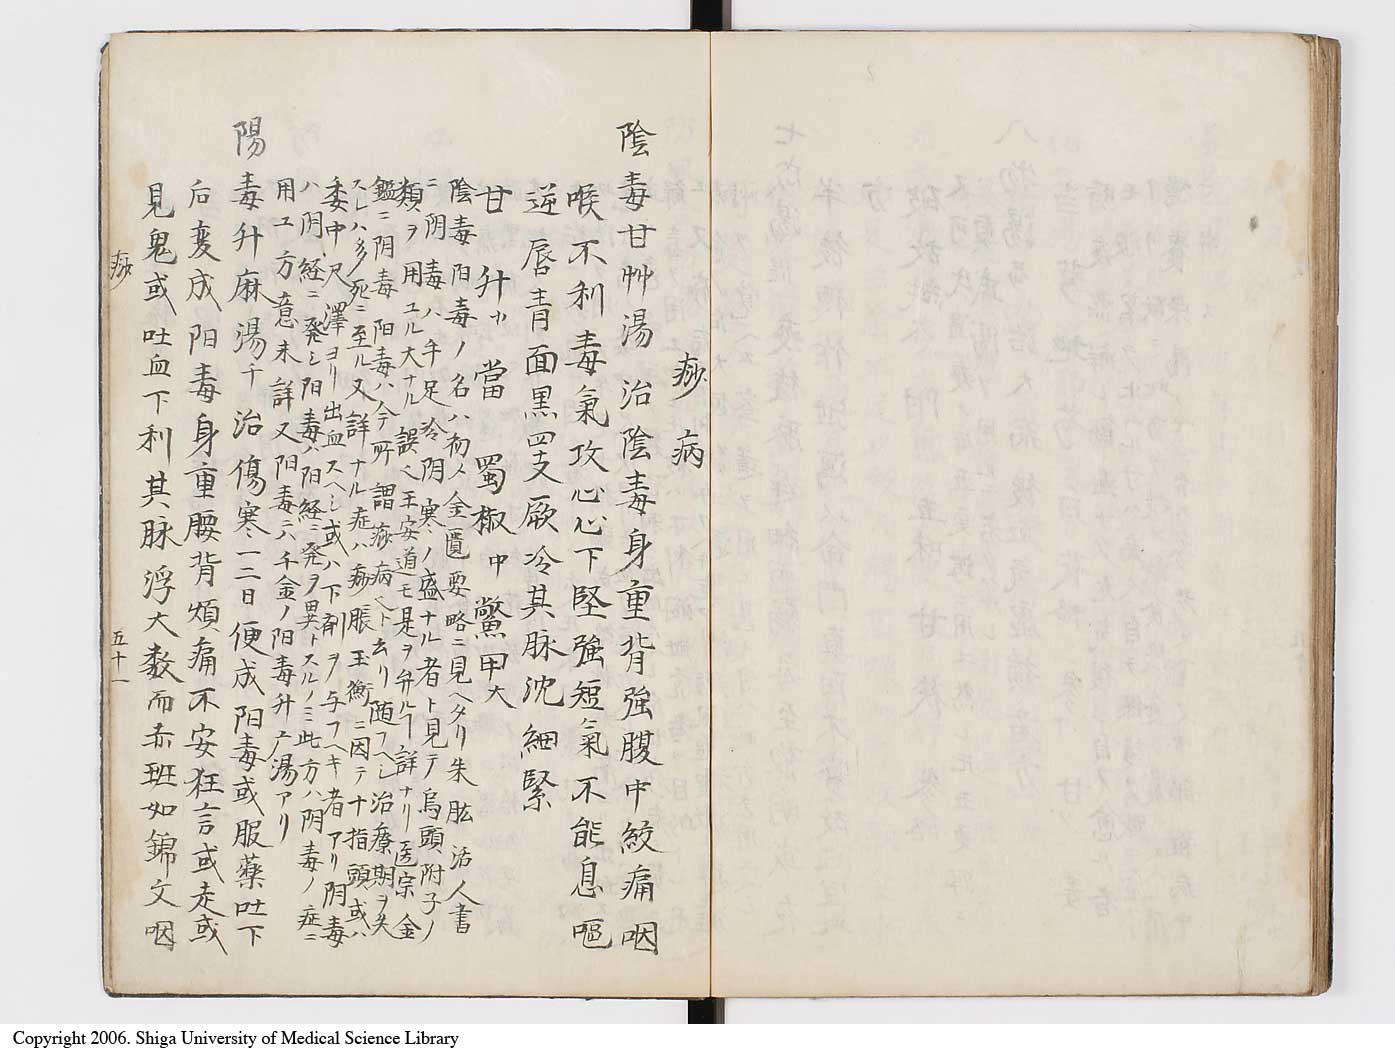 痧病
陰毒甘艸湯 治陰毒身重背強腹中絞痛咽
喉不利毒氣攻心心下堅強短氣不能息嘔
逆唇青面黒四支厥冷其脉沈細緊
甘 升 當 蜀椒中 鱉甲大
陰毒阳毒ノ名ハ初メ金匱要略ニ見ヘタリ朱肱活人書
ニ阴毒ハ手足冷阴寒ノ盛ナル者ト見テ烏頭附子ノ
類ヲ用ユル大ナル誤ヘ王安道モ是ヲ弁ルヿ詳ナリ医宗金
鑑ニ阴毒阳毒ハ今所謂痧病ヘト云リ随フヘシ治療期ヲ失
スレハ多ク死ニ至ル又詳ナル症ハ痧脹玉衡ニ因テ十指頭或ハ
委中尺澤ヨリ出血スヘシ或ハ下剤ヲ与フヘキ者アリ阴毒
ハ阴経ニ発シ阳毒ハ阳経ニ発ヲ異トスルノミ此方ハ阴毒ノ症ニ
用ユ方意未詳又阳毒ニハ千金ノ阳毒升广湯アリ
陽毒升麻湯千 治傷寒一二日便成阳毒或服藥吐下
后変成阳毒身重腰背煩痛不安狂言或走或
見鬼或吐血下利其脉浮大数而赤班如錦文咽
痧
五十一
Copyright 2006. Shiga University of Medical Science Library